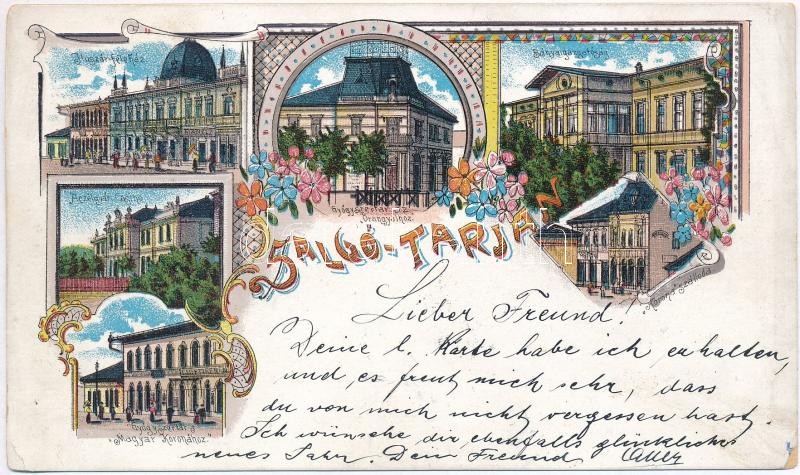 Bányaigazgatóság
Gyógyszertár az
"Őrangyalhoz."
SALGÓ-TARJÁN
"Korona" szálloda
Gyógyszertár a
"Magyar Koronához."
Lieber Freund!
Deine l. Karte habe ich erhalten,
und es freut mich sehr, dass
du von mich nicht vergessen hast.
Ich wünsche dir ebenfalls glückliches
neues Jahr. Dein Freund